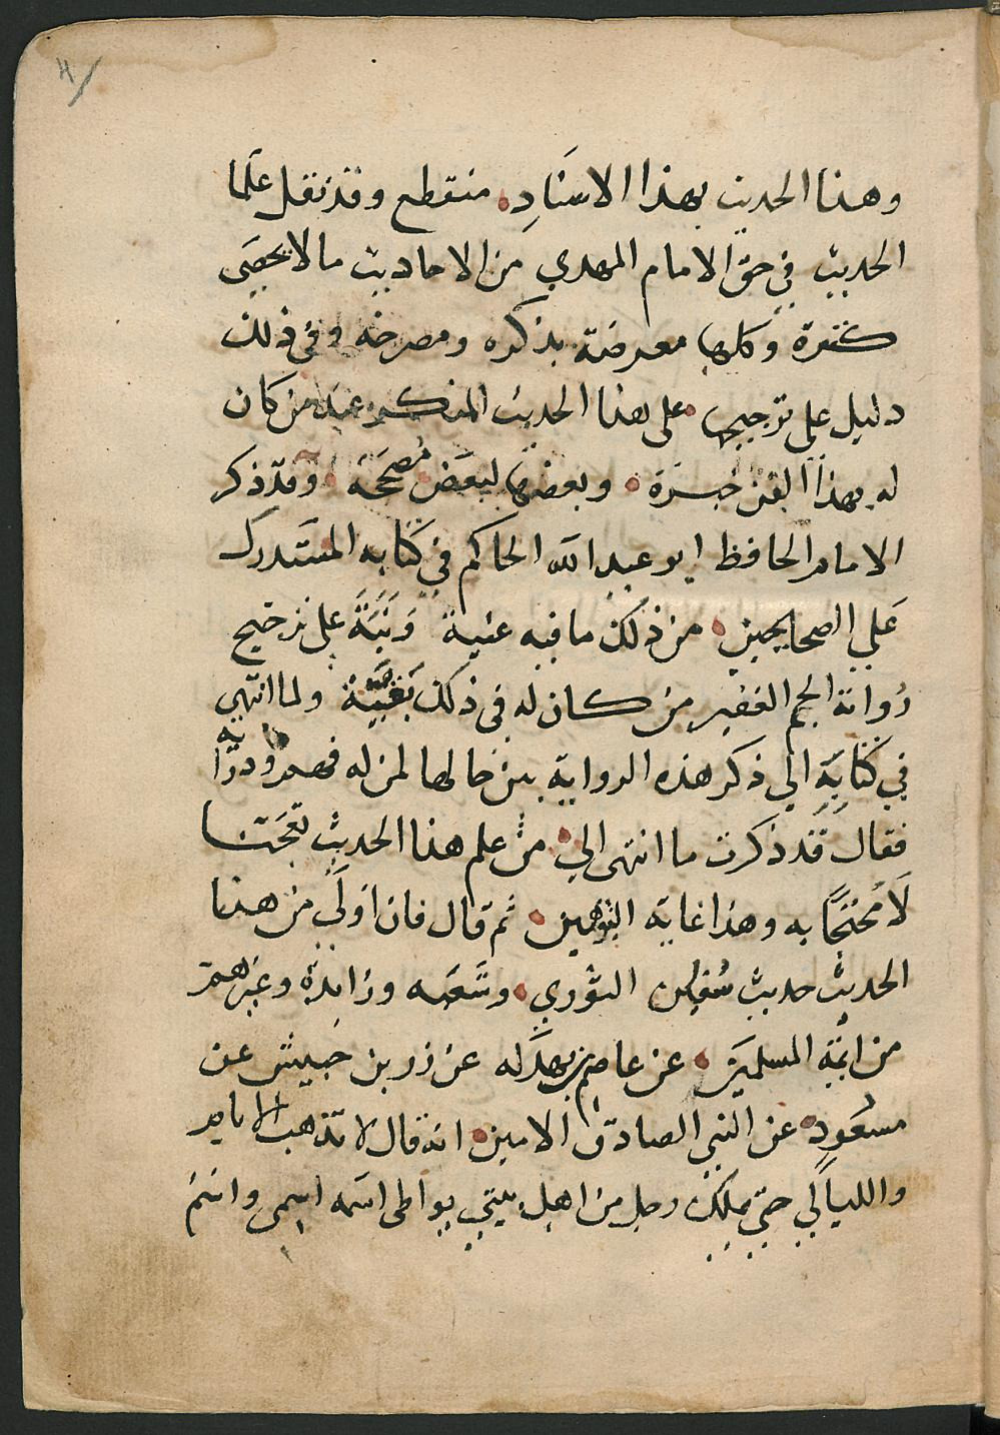 ٤
وهذا الحديث بهذا الاسنَادِ منقطع وقد نقل علما
الحديث في حق الامام المهدي من الاحاديث مالا يحصَى
كثرة وكلها معرضة بذكره ومصرحة وفي ذلك
دليل على ترجيحها على هذا الحديث المنكر عند من كان
له بهذا الفن خبرة وبعضها لبعض مُصححَة وقد ذكر
الامام الحافظ ابو عبد الله الحاكم في كتابه المستدرك
عَلي الصحايحين من ذلك ما فيه غنية وَنبَّهَ على ترجيح
رُواية الجم الغفير من كان له في ذلك بَغيَّة ولما انتهى
في كتابهِ الي ذكر هذه الرواية بين حالها لمن له فهم ودرايه
فقال قَد ذكرت ما انتهى الي من علم هذا الحديث تعجبا
لَا مُحتجًّا به وهذا غاية التوهين ثم قال فان اولَى من هذا
الحديث حديث سُفين الثوري وشَعبَه وزايدة وغيرهم
من ائمة المسلمين عن عاصم بن بهدَله عن زر بن حَبيش عن
مسعَودٍ عن النبي الصادق الامين انه قال لا تذهب الايام
والليالي حتي يملك رجل من اهل بيتي يواطى اسمه اسمى واسمُ